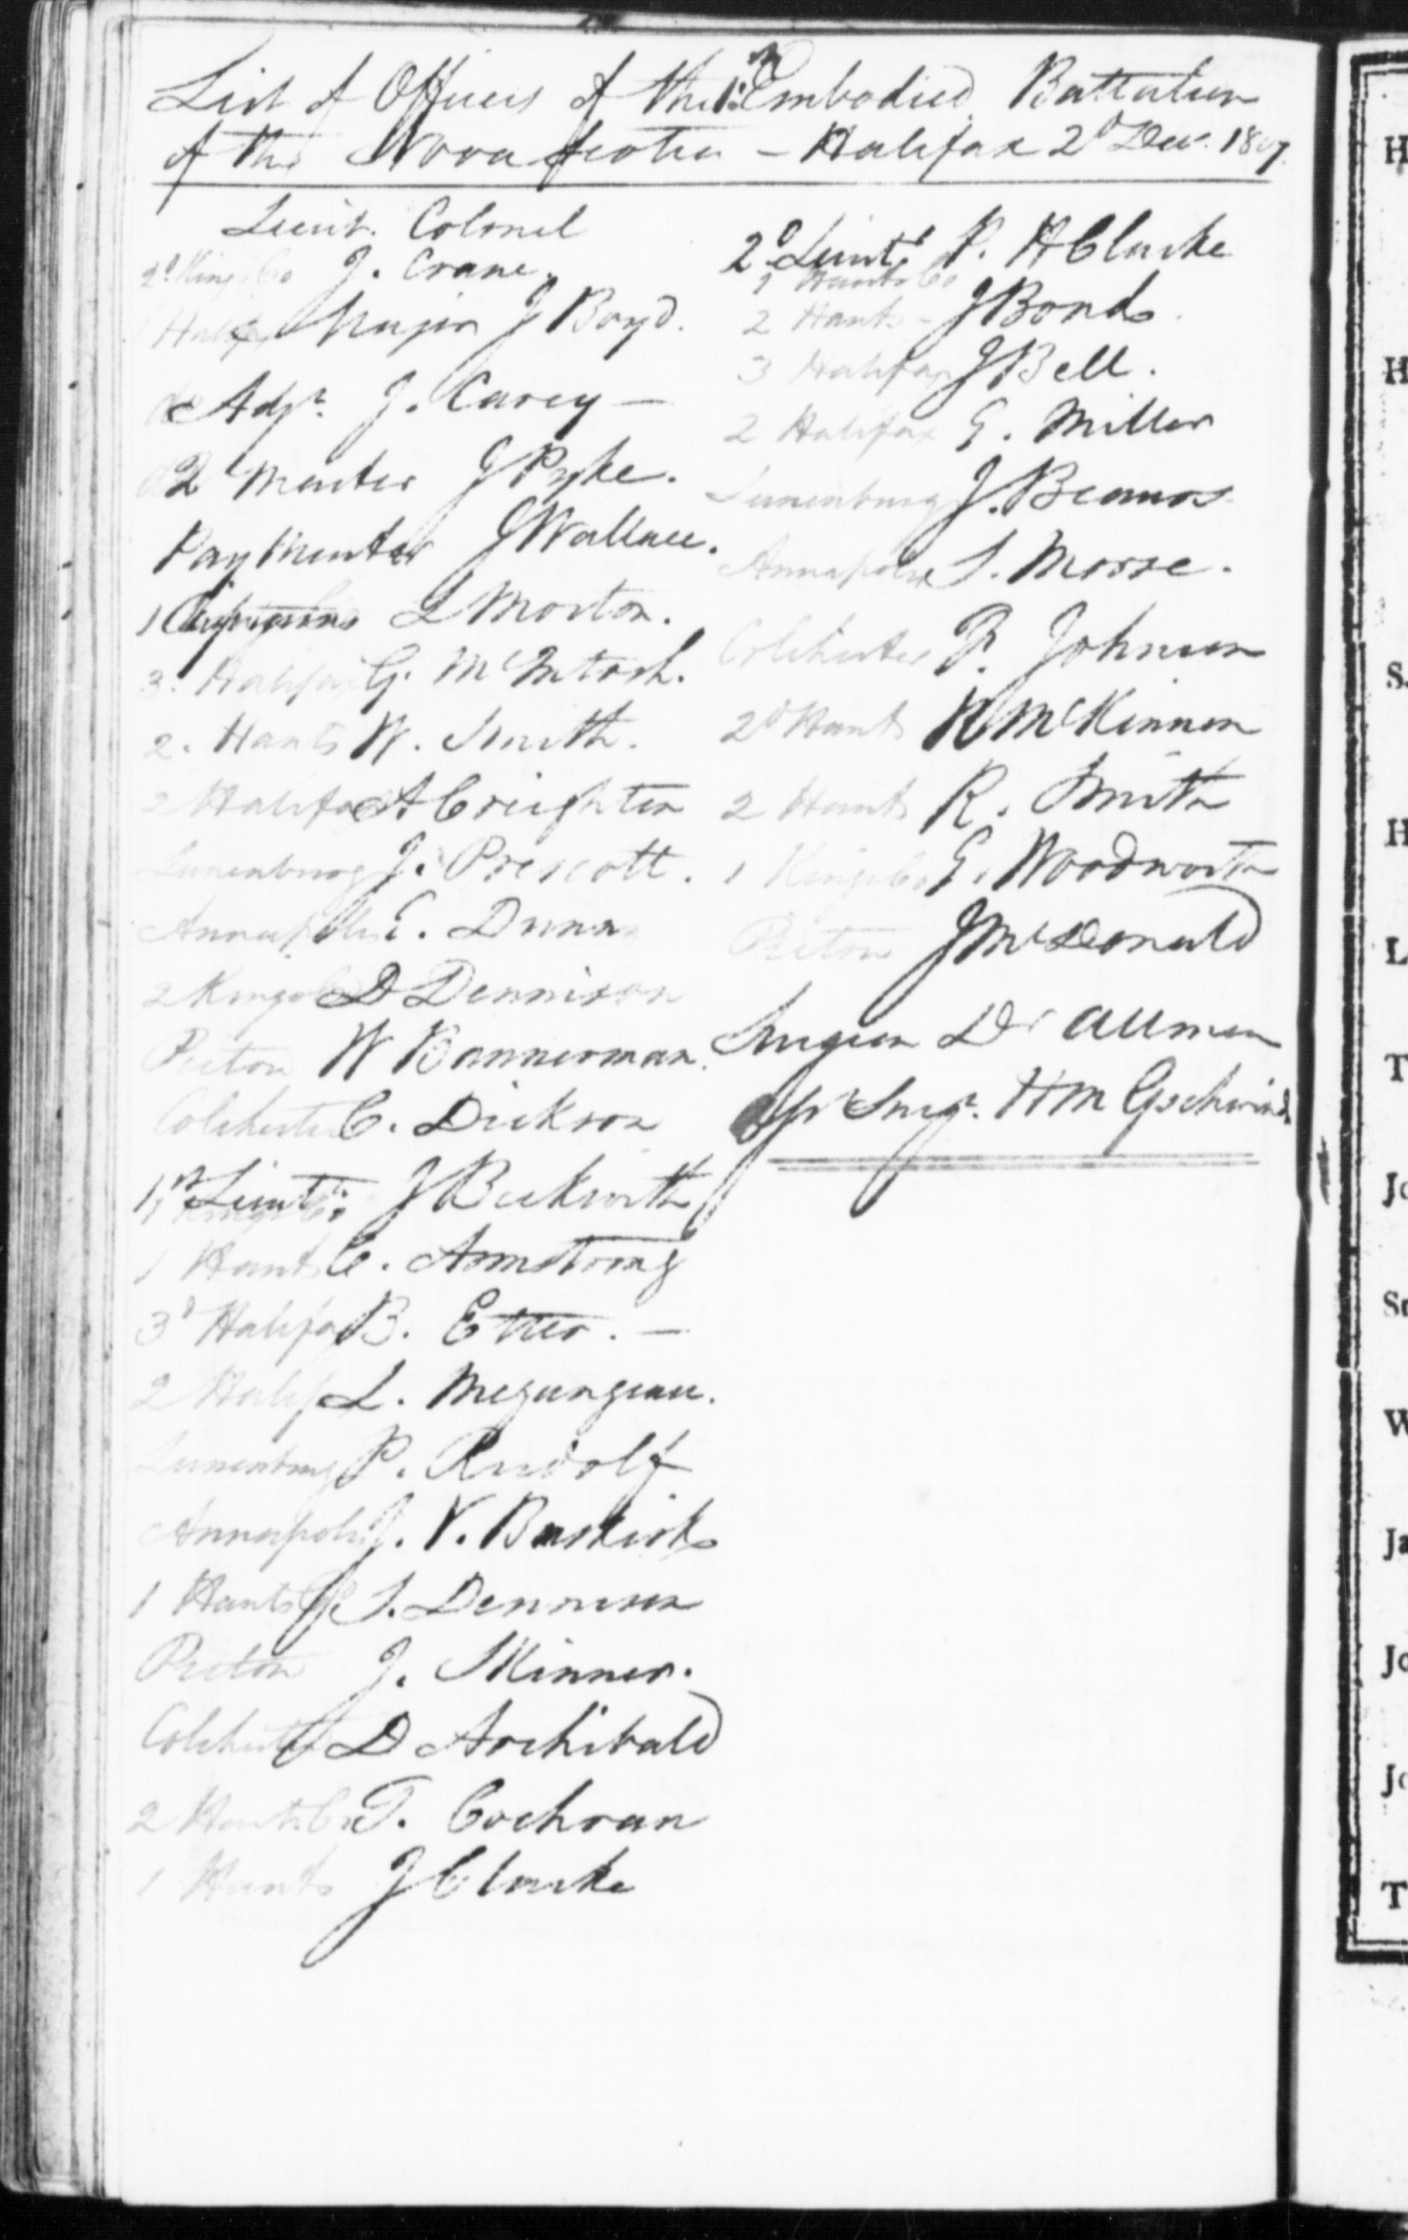 List of Officers of the 1st Embodied Battalion
of the Nova Scotia – Halifax 2d Decr. 1807.
Lieut. Colonel
2d Kings Co J. Crane.
Halifax Major J Boyd.
do Adjt. J. Carey –
do Q Master G Pyke.
Pay Master J Wallace.
1 Captains L Morton.
3. Halifax G. McIntosh.
2. Hants W. Smith.
2 Halifax A Creighton
Lunenburg J. Prescott.
Annapolis E. Dunn
2 Kings Co D Dennison
Picton W Bannerman.
Colchester C. Dickson
1st Lieuts J Beckwith
1 Kings Co
1 Hants C. Armstrong
3d Halifax B. Etter. –
2 Halifx L.
Lunenburg P. Rudolf
Annapolis J. V. Buskirk
1 Hants J. S. Dennison
Picton J. Skinner.
Colchester D Archibald
2 Hants Co T. Cochran
1 Hants J Clarke
2d Lieuts P. H Clarke
1 Hants Co
2 Hants – J Bond
3 Halifax J Bell.
2 Halifax G. Miller
Lunenburg J. Beamar
Annapolis S. Morse.
Colchester P. Johnson
2d Hants N McKinnon
2 Hants R. Smith
1 Kings Co E. Woodworth
Picton J McDonald
Surgeon Dr Allmon
Asst Surg. H M Gschwind
H
H
S.
H
L
T
Jo
Sc
W
Ja
Jo
Jo
T